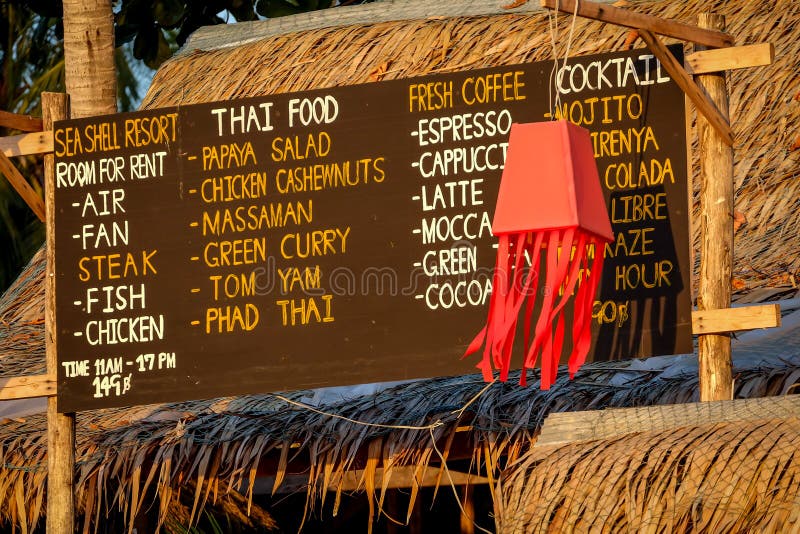 SEA SHELL RESORT
ROOM FOR RENT
-AIR
-FAN
STEAK
-FISH
-CHICKEN
TIME 11AM - 17 PM
149฿
THAI FOOD
- PAPAYA SALAD
- CHICKEN CASHEWNUTS
- MASSAMAN
- GREEN CURRY
- TOM YAM
- PHAD THAI
FRESH COFFEE
-ESPRESSO
-CAPPUCCI
-LATTE
-MOCCA
-GREEN
-COCOA
COCKTAIL
-MOJITO
IRENYA
COLADA
LIBRE
KAZE
HOUR
90฿
dreamstime